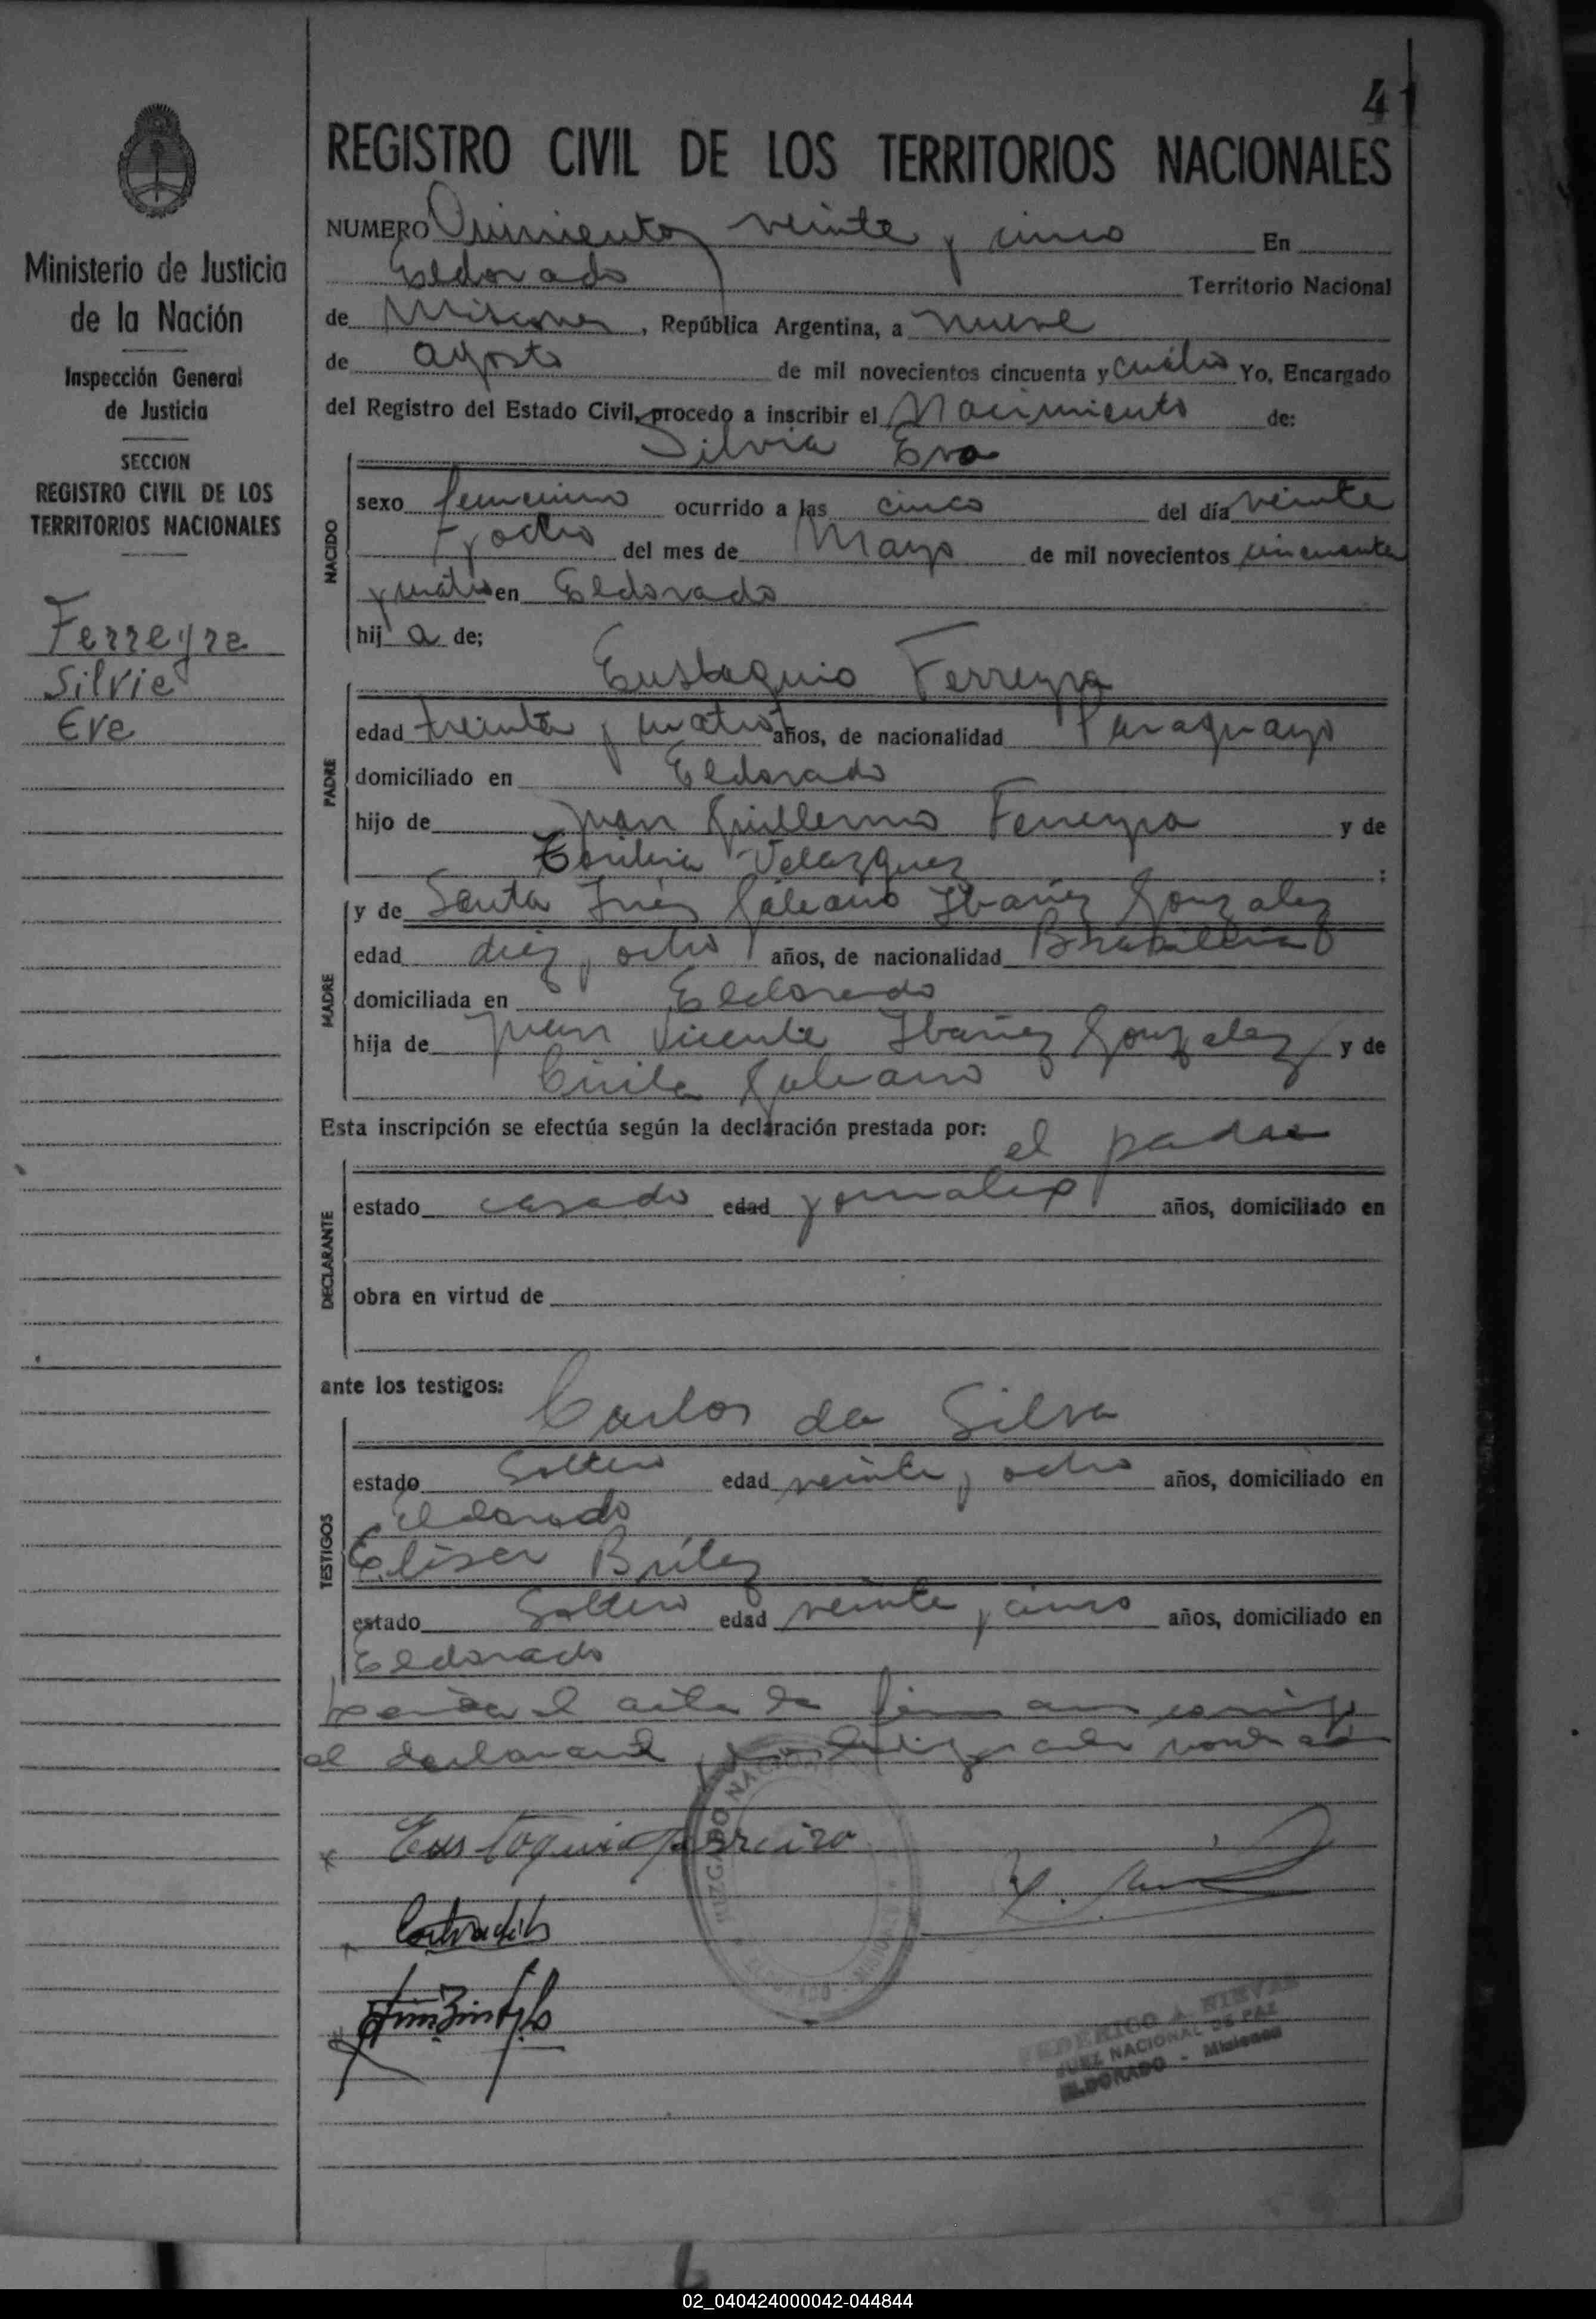 41
REGISTRO CIVIL DE LOS TERRITORIOS NACIONALES
Ministerio de Justicia
de la Nación
Inspección General
de Justicia
SECCION
REGISTRO CIVIL DE LOS
TERRITORIOS NACIONALES
Ferreyra
Silvia
Eva
NUMERO Quinientos veinte y cinco En
Eldorado Territorio Nacional
de Misiones, República Argentina, a nueve
de agosto de mil novecientos cincuenta y cuatro Yo, Encargado
del Registro del Estado Civil, procedo a inscribir el Nacimiento de:
Silvia Eva
NACIDO
sexo femenino ocurrido a las cinco del día veinte
y ocho del mes de Mayo de mil novecientos cincuenta
y cuatro en Eldorado
hij a de;
Eustaquio Ferreyra
PADRE
edad treinta y cuatro años, de nacionalidad Paraguayo
domiciliado en Eldorado
hijo de Juan Guillermo Ferreyra y de
Toribia Velazquez ;
MADRE
y de Santa Inés Galeano Ibañez Gonzalez
edad diez y ocho años, de nacionalidad Brasillera
domiciliada en Eldorado
hija de Juan Vicente Ibañez Gonzalez y de
Cirila Galeano
Esta inscripción se efectúa según la declaración prestada por: el padre
DECLARANTE
estado casado edad jornalero años, domiciliado en
obra en virtud de
ante los testigos:
Carlos da Silva
TESTIGOS
estado Soltero edad veinte y ocho años, domiciliado en
Eldorado
Eliser Britez
estado Soltero edad veinte y cinco años, domiciliado en
Eldorado
el acta la firman conmigo
el declarante y los testigos
Eustoquio Ferreira
JUZGADO NACIONAL
FEDERICO A. NIEVAS
JUEZ NACIONAL DE PAZ
ELDORADO - Misiones
02_040424000042-044844